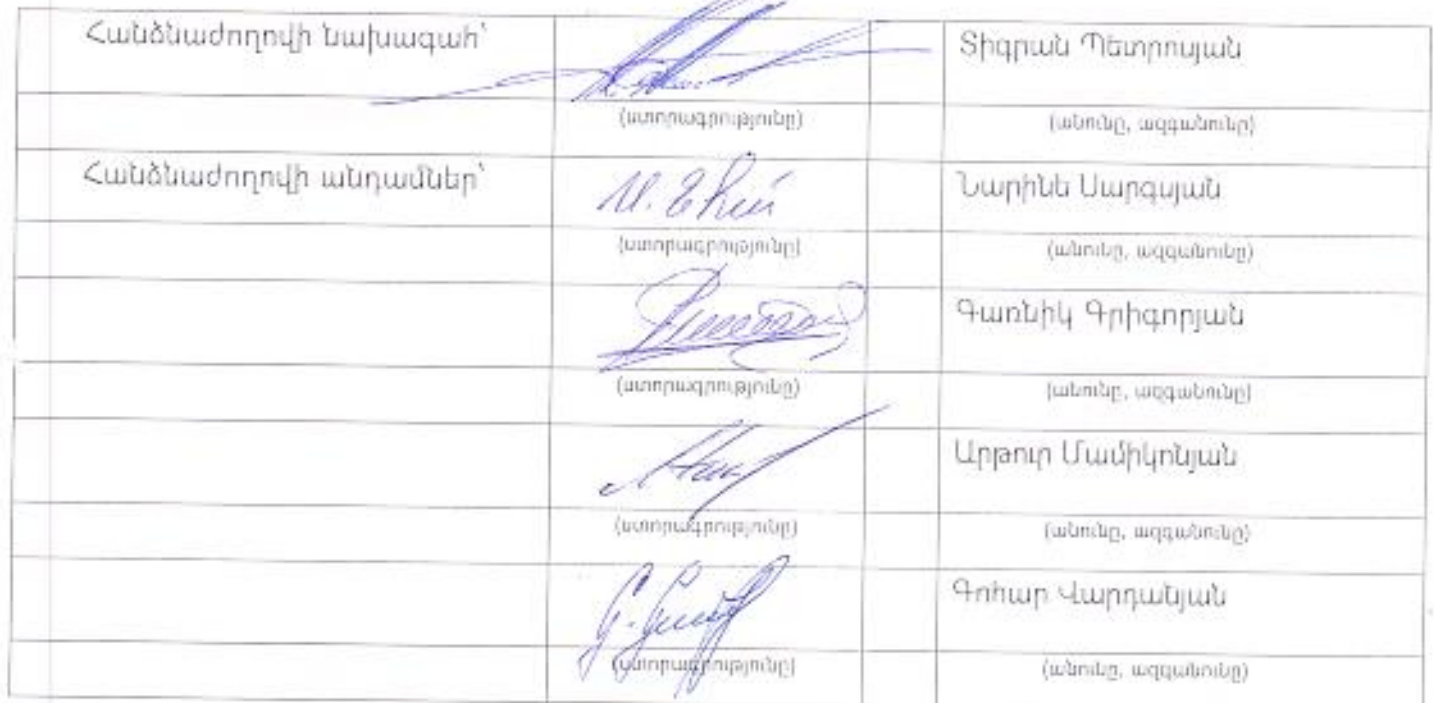 Հանձնաժողովի նախագահ՝ Տիգրան Պետրոսյան
(ստորագրությունը) (անունը, ազգանունը)
Հանձնաժողովի անդամներ՝ Նարինե Սարգսյան
(ստորագրությունը) (անունը, ազգանունը)
Գառնիկ Գրիգորյան
(ստորագրությունը) (անունը, ազգանունը)
Արթուր Մամիկոնյան
(ստորագրությունը) (անունը, ազգանունը)
Գոհար Վարդանյան
(ստորագրությունը) (անունը, ազգանունը)